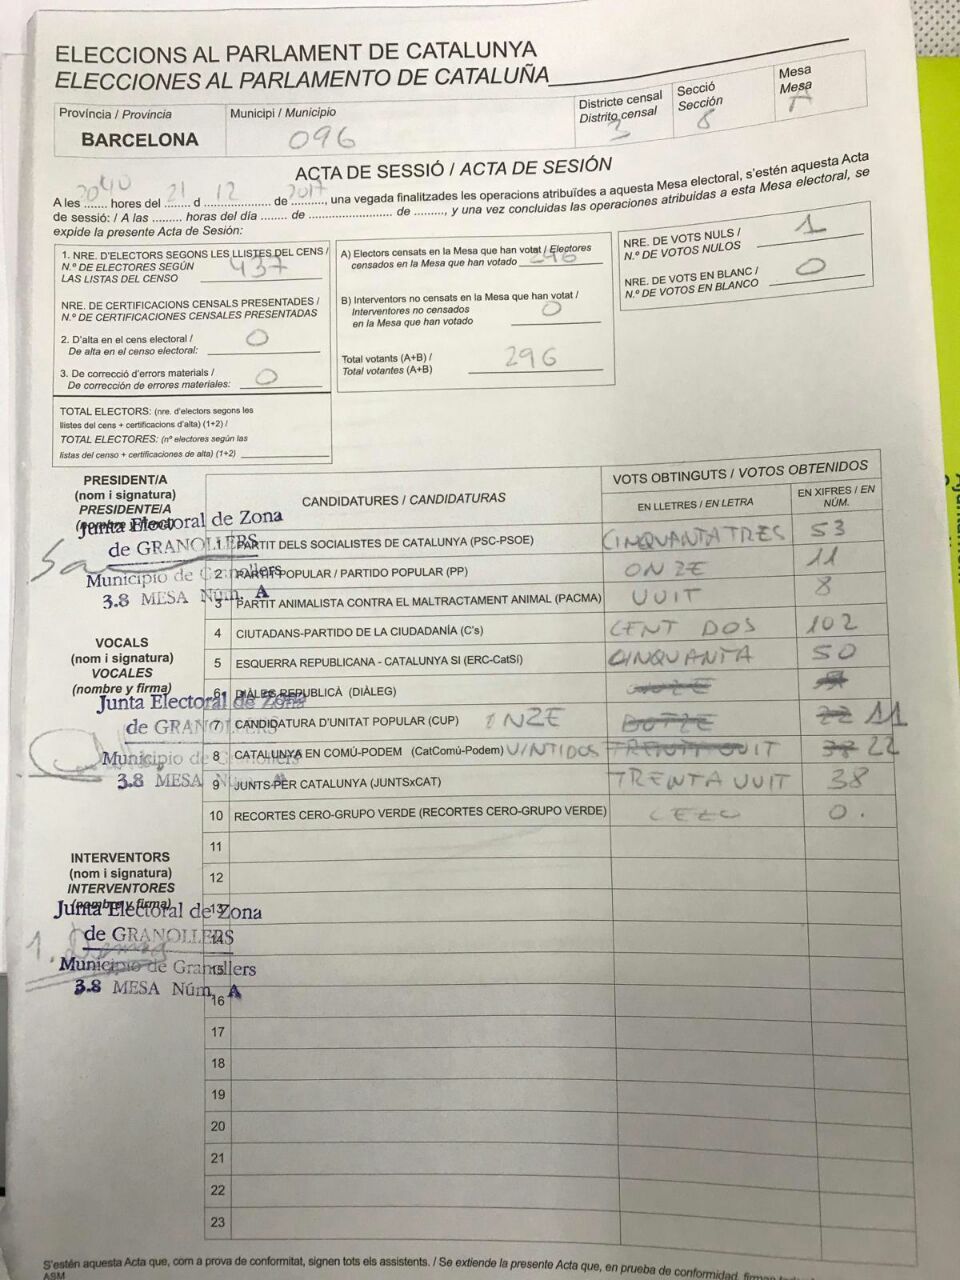 ELECCIONS AL PARLAMENT DE CATALUNYA
ELECCIONES AL PARLAMENTO DE CATALUÑA
Província / Provincia
BARCELONA
Municipi / Municipio
096
Districte censal
Distrito censal
3
Secció
Sección
8
Mesa
Mesa
A
ACTA DE SESSIÓ / ACTA DE SESIÓN
A les 2040 hores del 21 d 12 de 2017, una vegada finalitzades les operacions atribuïdes a aquesta Mesa electoral, s'estén aquesta Acta
de sessió: / A las ......... horas del día ........ de ........................ de ........., y una vez concluidas las operaciones atribuidas a esta Mesa electoral, se
expide la presente Acta de Sesión:
1. NRE. D'ELECTORS SEGONS LES LLISTES DEL CENS /
N.º DE ELECTORES SEGÚN
LAS LISTAS DEL CENSO 437
NRE. DE CERTIFICACIONS CENSALS PRESENTADES /
N.º DE CERTIFICACIONES CENSALES PRESENTADAS
2. D'alta en el cens electoral /
De alta en el censo electoral: 0
3. De correcció d'errors materials /
De corrección de errores materiales: 0
TOTAL ELECTORS: (nre. d'electors segons les
llistes del cens + certificacions d'alta) (1+2) /
TOTAL ELECTORES: (nº electores según las
listas del censo + certificaciones de alta) (1+2)
A) Electors censats en la Mesa que han votat / Electores
censados en la Mesa que han votado 296
B) Interventors no censats en la Mesa que han votat /
Interventores no censados
en la Mesa que han votado 0
Total votants (A+B) /
Total votantes (A+B) 296
NRE. DE VOTS NULS /
N.º DE VOTOS NULOS 1
NRE. DE VOTS EN BLANC /
N.º DE VOTOS EN BLANCO 0
PRESIDENT/A
(nom i signatura)
PRESIDENTE/A
Junta Electoral de Zona
de GRANOLLERS
Municipio de Granollers
3.8 MESA Núm. A
VOCALS
(nom i signatura)
VOCALES
(nombre y firma)
Junta Electoral de Zona
de GRANOLLERS
Municipio de Granollers
3.8 MESA Núm. A
INTERVENTORS
(nom i signatura)
INTERVENTORES
(nombre y firma)
Junta Electoral de Zona
de GRANOLLERS
Municipio de Granollers
3.8 MESA Núm. A
CANDIDATURES / CANDIDATURAS
VOTS OBTINGUTS / VOTOS OBTENIDOS
EN LLETRES / EN LETRA
EN XIFRES / EN NÚM.
1 PARTIT DELS SOCIALISTES DE CATALUNYA (PSC-PSOE) CINQUANTATRES 53
2 PARTIT POPULAR / PARTIDO POPULAR (PP) ONZE 11
3 PARTIT ANIMALISTA CONTRA EL MALTRACTAMENT ANIMAL (PACMA) VUIT 8
4 CIUTADANS-PARTIDO DE LA CIUDADANÍA (C's) CENT DOS 102
5 ESQUERRA REPUBLICANA - CATALUNYA SI (ERC-CatSí) CINQUANTA 50
6 DIÀLEG REPUBLICÀ (DIÀLEG)
7 CANDIDATURA D'UNITAT POPULAR (CUP) ONZE DOTZE 22 11
8 CATALUNYA EN COMÚ-PODEM (CatComú-Podem) VINTIDOS TRENTA VUIT 38 22
9 JUNTS PER CATALUNYA (JUNTSxCAT) TRENTA VUIT 38
10 RECORTES CERO-GRUPO VERDE (RECORTES CERO-GRUPO VERDE) CERO 0.
11
12
13
14
15
16
17
18
19
20
21
22
23
S'estén aquesta Acta que, com a prova de conformitat, signen tots els assistents. / Se extiende la presente Acta que, en prueba de conformidad, firman
ASM